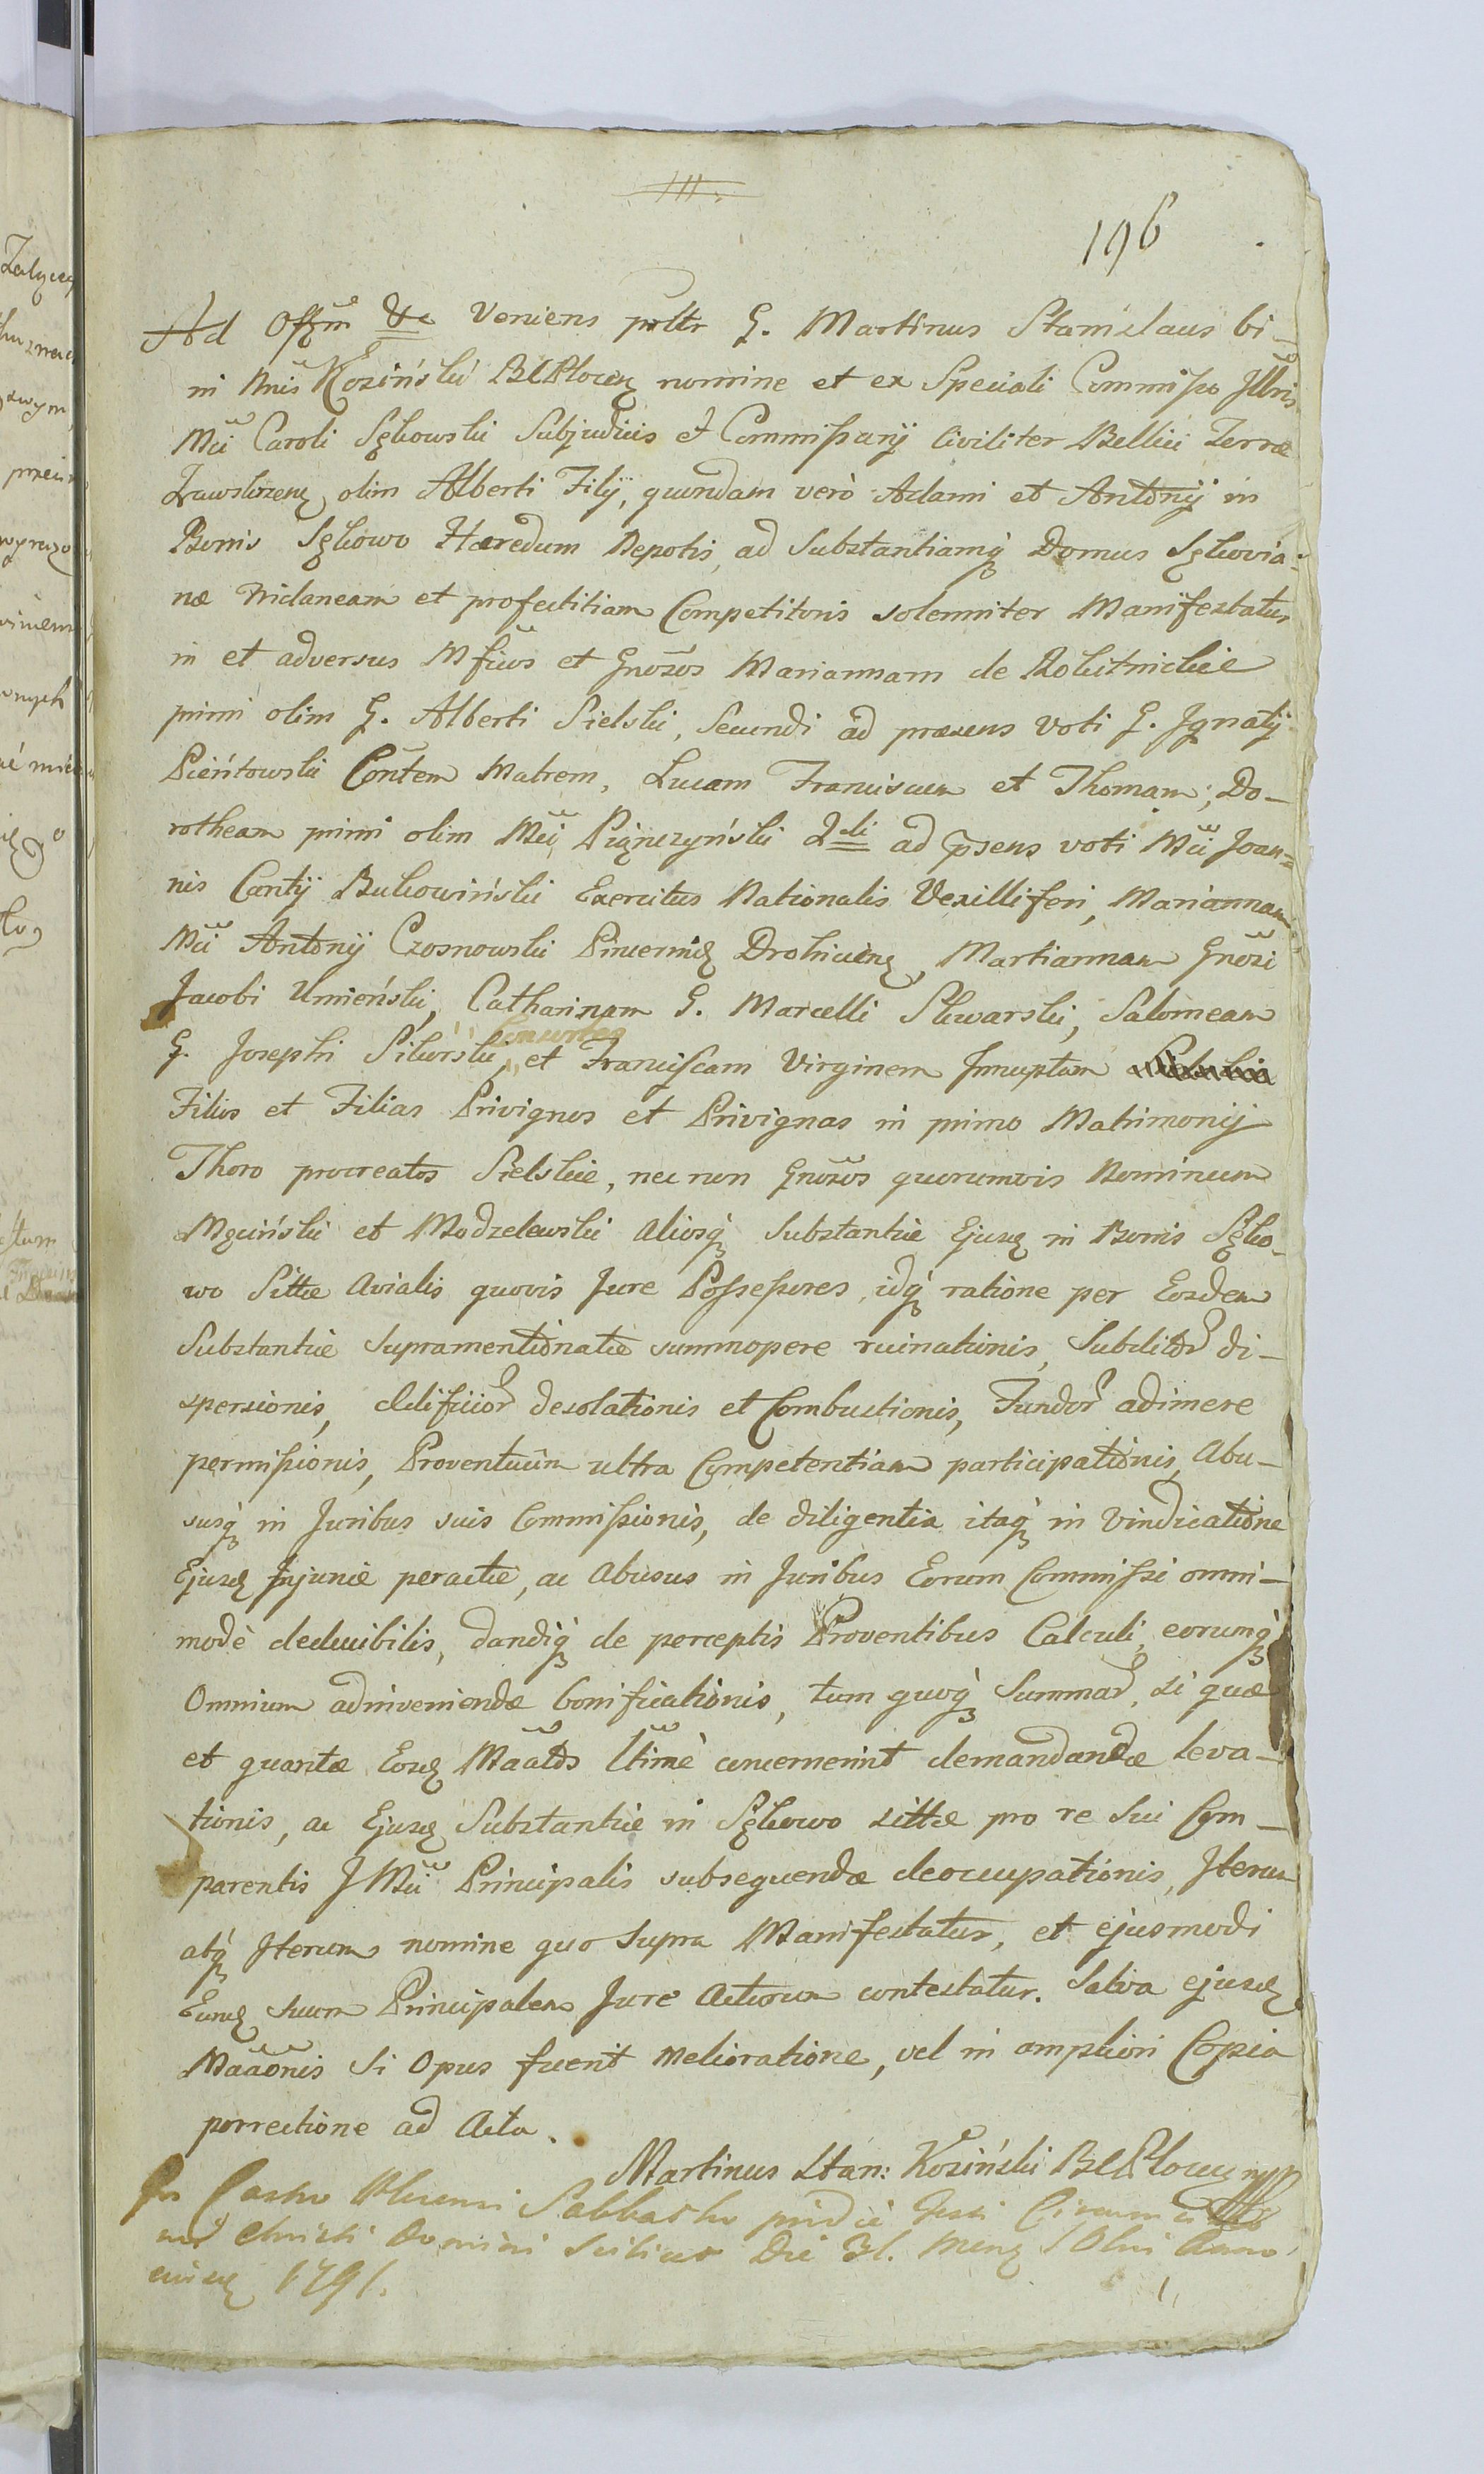 196
Ad Offm &c veniens psltr G. Martinus Stanislaus bi-
ni nnis Koziński BCPłocen nomine et ex Speciali Commisso Jllris
Mci Caroli Sękowski Subjudicis et Commissarij Civiliter Bellici Terræ
Zawskrzen olim Alberti Filij, quondam verò Adami et Antonij in
Bonis Sękowo Hæredum Nepotis, ad Substantiamq Domus Sękovia-
næ et profectitiam Competitoris solenniter Manifestatur
in et adversus Mficos et Gnosos Mariannam de Rokitnickie
primi olim G. Alberti Sielski, Secundi ad præsens voti G. Jgnatij
Pieńtowski Contem Matrem, Lucam Franciscum et Thomam, Do-
rotheam primi olim Mci 2di ad psens voti Mci Joan=
nis Cantij Bukowiński Exercitus Nationalis Vexilliferi, Mariannam
Mci Antonij Czosnowski Pincernid Drohicien, Martiannam Gnosi
Jacobi Umieński, Catharinam G. Marcelli Skwarski, Salomeam
G. Josephi Silurski, Consortes et Franciscam Virginem Jnnuptam
Filios et Filias Privignos et Privignas in primo Matrimonij
Thoro procreatos Sielskie, nec non Gnosos quorumvis Nominum
Mgciński et Modzelewski aliosq Substantiæ Ejusd in Bonis Sęko-
wo Sittæ avialis quovis Jure Possessores, idq ratione per Eosdem
Substantiæ supramentionatæ summopere ruinationis, Subditor di-
spersionis, Ædificior desolationis et Combustionis, Fundor adimere
permissionis, Proventuum ultra Competentiam participationis, Abu-
susq in Juribus suis Commissionis, de diligentia itaq in vindicatione
Ejusd Jnjuriæ peractæ, ac abusus in Juribus Eorum Commissi omni-
modè deducibilis, dandiq de perceptis Proventibus Calculi, eorumq
Omnium adinveniendæ bonificationis, tum quoq Summar, si quæ
et quantæ Eosd Maatos ltimè concernerint demandandæ leva-
tionis, ac Ejusd Substantiæ in Sękowo sittæ pro re sui Com-
parentis J Mci Principalis subsequendæ deoccupationis, Jterum
atq Jterum nomine quo supra Manifestatur, et ejusmodi
Eund suum Principalem Jure acturum contestatur. Salva ejusd
Maaonis si Opus fuerit melioratione, vel in ampliori Copia
porrectione ad Acta.
Martinus Stan: Koziński BCPłocen mpp
In Castro Sabbatho pridie Festi Circumcisio
nis Christi Domini scilicet Die 31. Mens Xbris Anno
eiusd 1791.